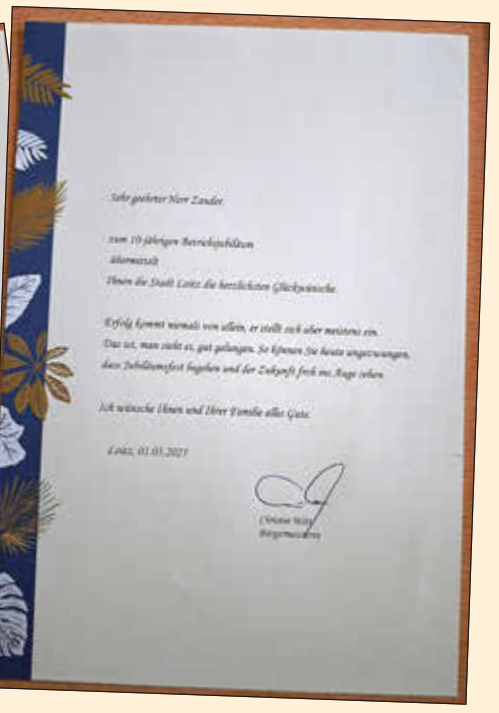 Sehr geehrter Herr Zander,
zum 10-jährigen Betriebsjubiläum
übermittelt
Ihnen die Stadt Loitz die herzlichsten Glückwünsche.
Erfolg kommt niemals von allein, er stellt sich aber meistens ein.
Das ist, man sieht es, gut gelungen. So können Sie heute ungezwungen,
dass Jubiläumsfest begehen und der Zukunft froh ins Auge sehen.
Ich wünsche Ihnen und Ihrer Familie alles Gute.
Loitz, 01.03.2021
Christin Witt
Bürgermeisterin